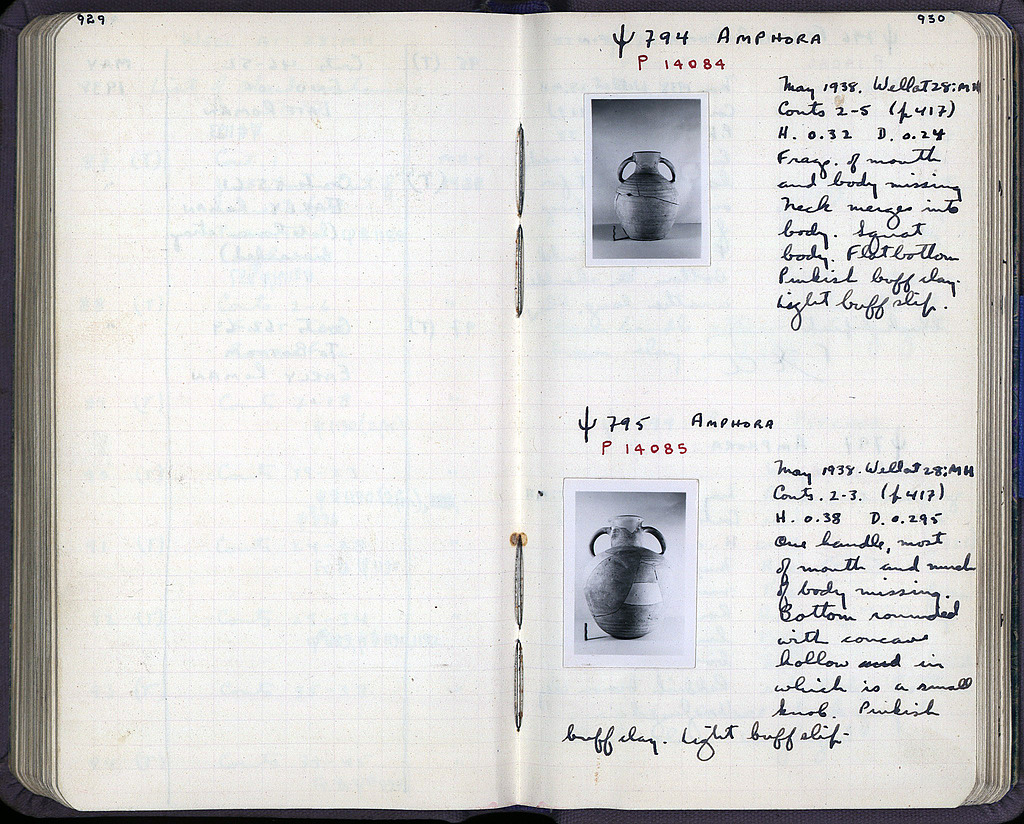 929
930
Ψ 794 AMPHORA
P 14084
May 1938. Well at 28:MH
Conts 2-5 (p 417)
H. 0.32 D. 0.24
Frags. of mouth
and body missing
Neck merges into
body. Squat
body. Flat bottom
Pinkish buff clay.
Light buff slip.
Ψ 795 AMPHORA
P 14085
May 1938. Well at 28:MH
Conts. 2-3. (p 417)
H. 0.38 D. 0.295
One handle, most
of mouth and much
of body missing.
Bottom rounded
with concave
hollow and in
which is a small
knob. Pinkish
buff clay. Light buff slip-